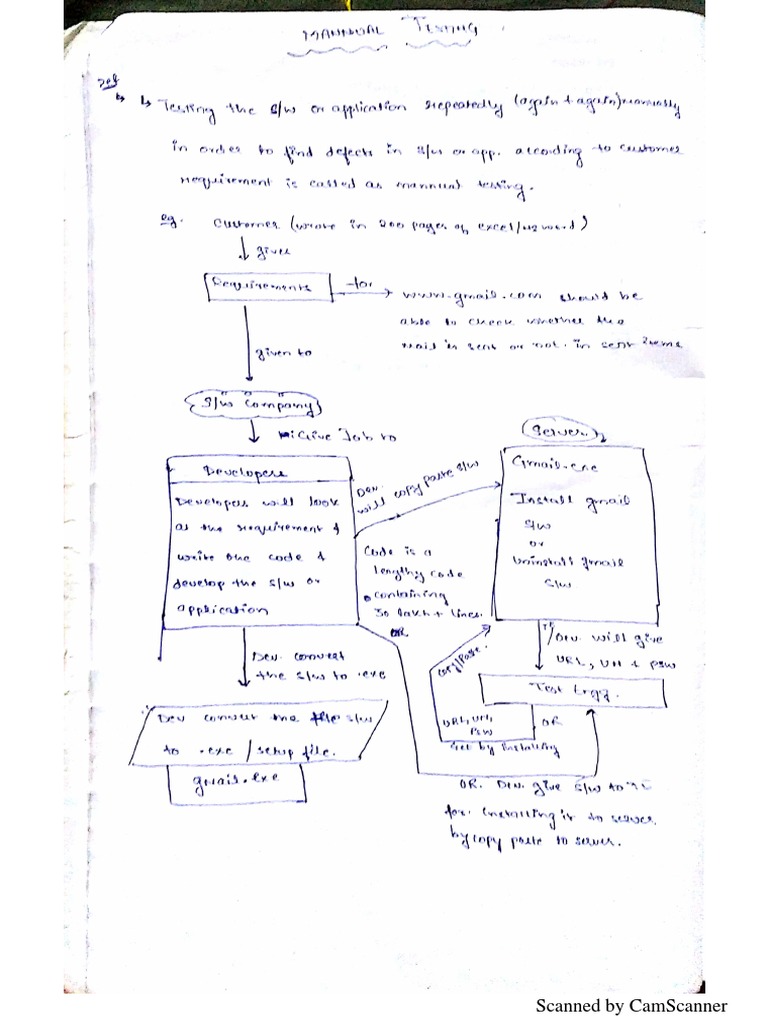 MANNUAL TESTING
Def
↳ ↳ Testing the S/W or application repeatedly (again + again) manually
in order to find defects in S/W or app. according to customer
requirement is called as mannual testing.
eg. customer (wrote in 200 pages of excel/ms word)
↓ gives
Requirements
for → www.gmail.com should be
able to check whether the
mail is sent or not. in sent Items
given to
S/W Company
↓ Give Job to
Developers
Developers will look
as the requirement &
write the code &
develop the S/W or
application
Dev.
will copy paste S/W
Code is a
lengthy code
containing
30 lakh+ lines.
OR
Server
Gmail.exe
Install gmail
S/W
or
Uninstall gmail
S/W
Dev. convert
the S/W to .exe
Dev convert the S/W
to .exe / setup file.
gmail.exe
Dev. will give
URL, UN + PSW
Test Engg.
Copy/Paste.
URL, UN,
PSW
OR
Get by installing
OR. Dev. give S/W to TE
for installing it to server
by copy paste to server.
Scanned by CamScanner